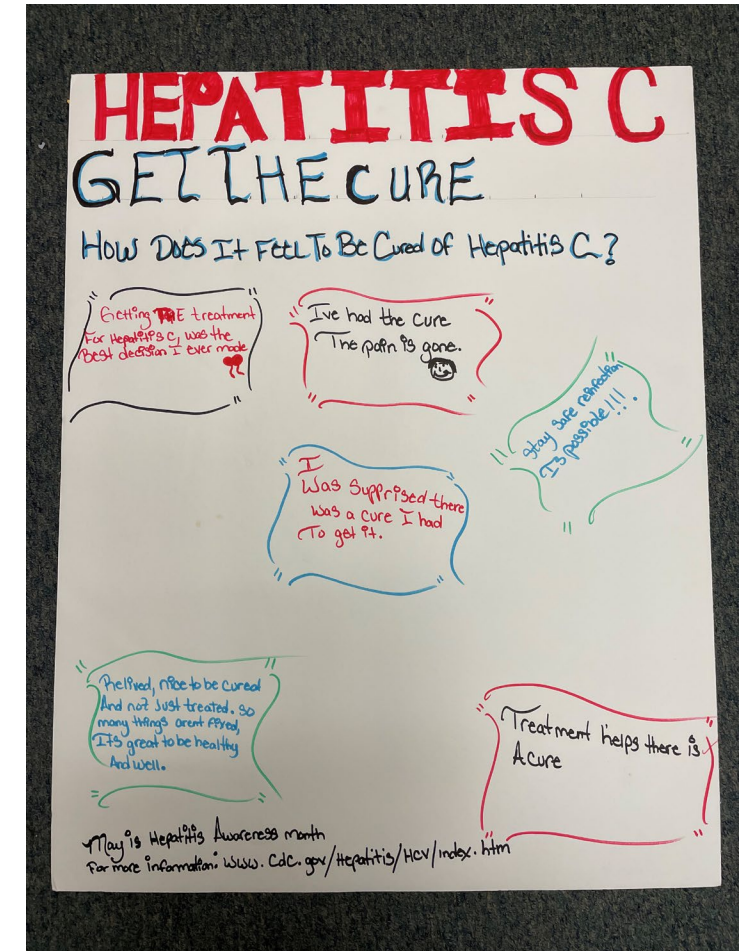 HEPATITIS C
GET THE CURE
How Does It Feel To Be Cured of Hepatitis C?
" Getting THE treatment
For Hepatitis C, was the
Best decision I ever made
"
" Ive had the cure
The pain is gone.
"
Stay safe reinfection
Is possible!!!.
"
I
Was Supprised there
was a cure I had
To get it.
"
Relived, nice to be cured
And not Just treated. So
many things arent fixed,
ITs great to be healthy
And well.
"
Treatment helps there is
A Cure
"
May is Hepatitis Awareness month
For more information: www.Cdc.gov/Hepatitis/Hcv/Index.htm